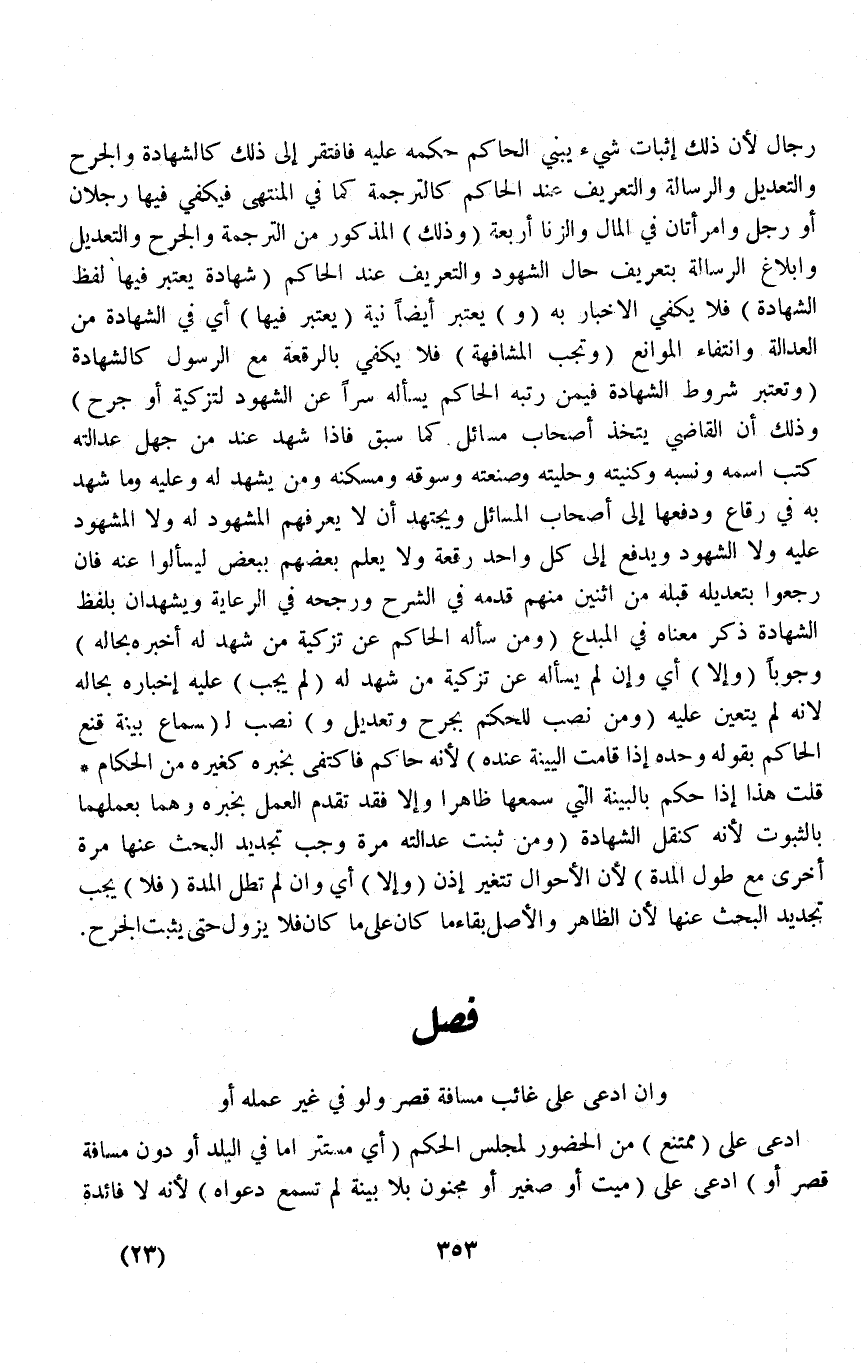 رجال لأن ذلك إثبات شيء يبني الحاكم حكمه عليه فافتقر إلى ذلك كالشهادة والجرح
والتعديل والرسالة والتعريف عند الحاكم كالترجمة كما في المنتهى فيكفي فيها رجلان
أو رجل وامرأتان في المال والزنا أربعة (وذلك) المذكور من الترجمة والجرح والتعديل
وابلاغ الرسالة بتعريف حال الشهود والتعريف عند الحاكم (شهادة يعتبر فيها لفظ
الشهادة) فلا يكفي الاخبار به (و) يعتبر أيضاً نية (يعتبر فيها) أي في الشهادة من
العدالة وانتفاء الموانع (وتجب المشافهة) فلا يكفي بالرقعة مع الرسول كالشهادة
(وتعتبر شروط الشهادة فيمن رتبه الحاكم يسأله سراً عن الشهود لتزكية أو جرح)
وذلك أن القاضي يتخذ أصحاب مسائل كما سبق فاذا شهد عند من جهل عدالته
كتب اسمه ونسبه وكنيته وحليته وصنعته وسوقه ومسكنه ومن يشهد له وعليه وما شهد
به في رقاع ودفعها إلى أصحاب المسائل ويجتهد أن لا يعرفهم المشهود له ولا المشهود
عليه ولا الشهود ويدفع إلى كل واحد رقعة ولا يعلم بعضهم ببعض ليسألوا عنه فان
رجعوا بتعديله قبله من اثنين منهم قدمه في الشرح ورجحه في الرعاية ويشهدان بلفظ
الشهادة ذكر معناه في المبدع (ومن سأله الحاكم عن تزكية من شهد له أخبره بحاله)
وجوباً (وإلا) أي وإن لم يسأله عن تزكية من شهد له (لم يجب) عليه إخباره بحاله
لانه لم يتعين عليه (ومن نصب للحكم بجرح وتعديل و) نصب لـ(سماع بينة قنع
الحاكم بقوله وحده إذا قامت البينة عنده) لأنه حاكم فاكتفى بخبره كغيره من الحكام *
قلت هذا إذا حكم بالبينة التي سمعها ظاهرا وإلا فقد تقدم العمل بخبره وهما بعملهما
بالثبوت لأنه كنقل الشهادة (ومن ثبنت عدالته مرة وجب تجديد البحث عنها مرة
أخرى مع طول المدة) لأن الأحوال تتغير إذن (وإلا) أي وان لم تطل المدة (فلا) يجب
تجديد البحث عنها لأن الظاهر والأصل بقاء ما كان على ما كان فلا يزول حتى يثبت الجرح.
فصل
وان ادعى على غائب مسافة قصر ولو في غير عمله أو
ادعى على (ممتنع) من الحضور لمجلس الحكم (أي مستتر اما في البلد أو دون مسافة
قصر أو) ادعى على (ميت أو صغير أو مجنون بلا بينة لم تسمع دعواه) لأنه لا فائدة
٣٥٣
(٢٣)